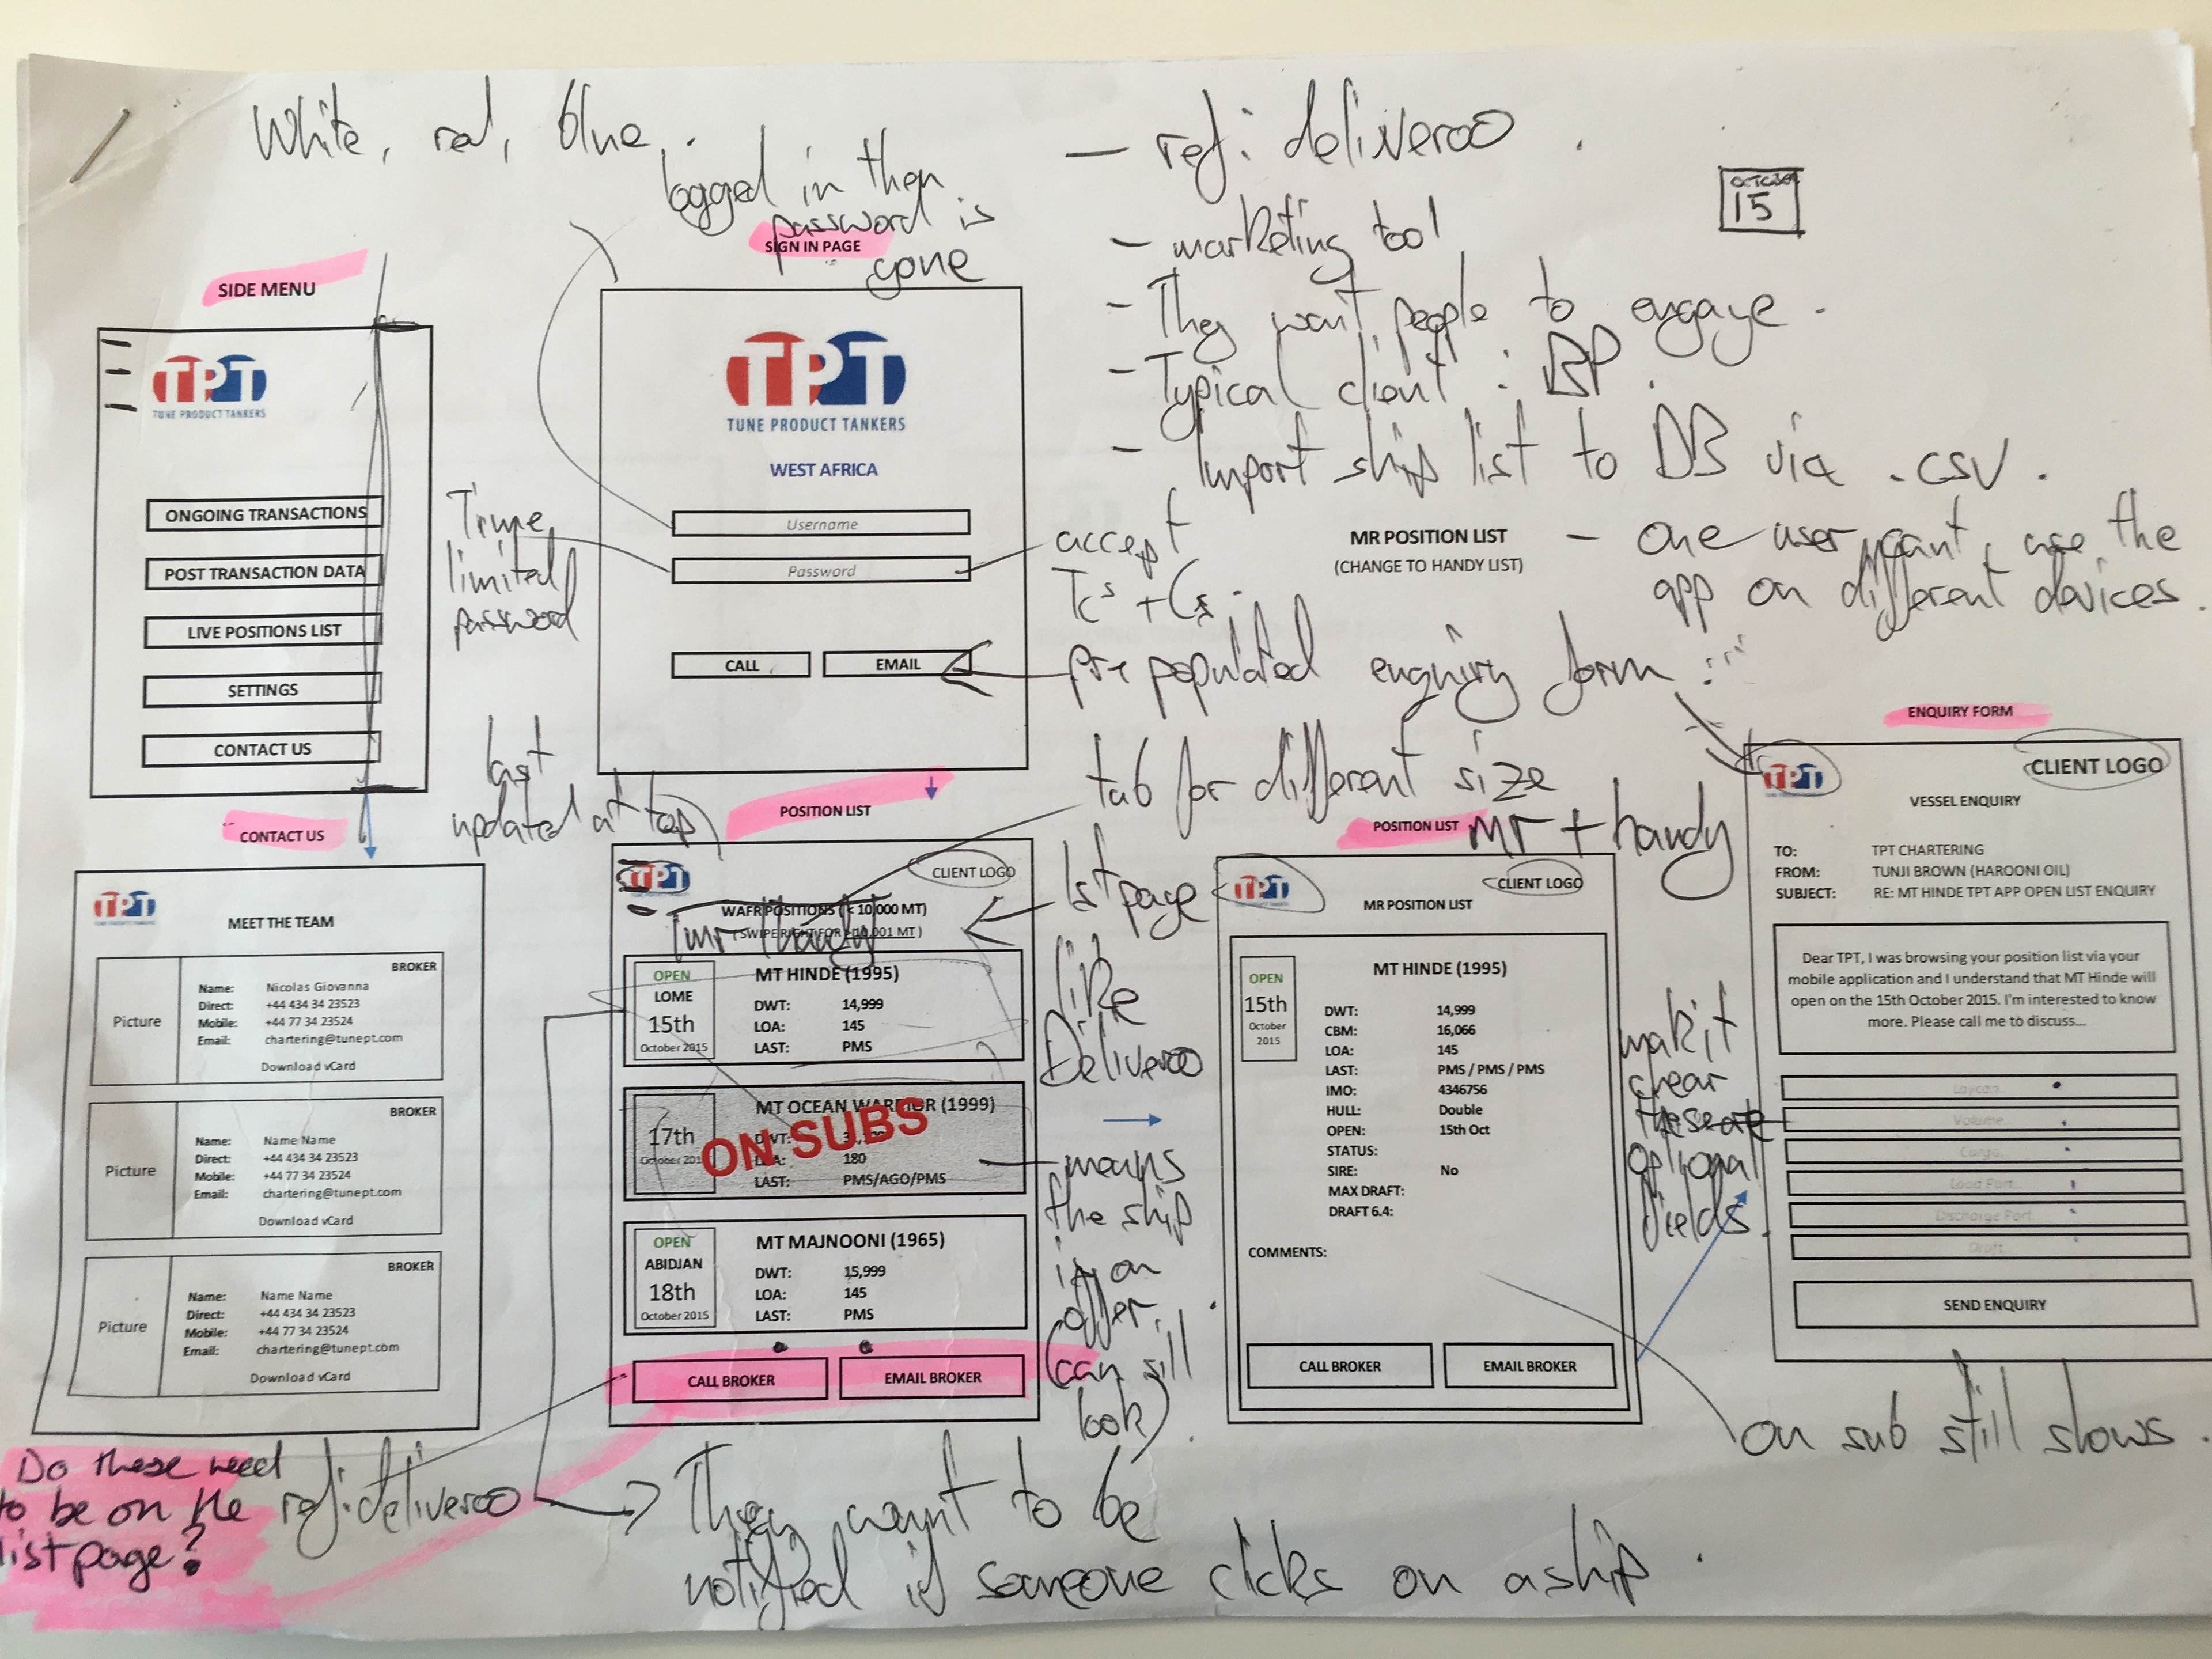 White, red, blue,.
logged in then
password is
gone
- ref: deliveroo.
- marketing tool
- They want people to engage.
- Typical client: BP.
- Import ship list to DB via .csv.
- one user can't use the
app on different devices.
OCTOBER
15
SIDE MENU
TPT
TUNE PRODUCT TANKERS
ONGOING TRANSACTIONS
POST TRANSACTION DATA
LIVE POSITIONS LIST
SETTINGS
CONTACT US
SIGN IN PAGE
TPT
TUNE PRODUCT TANKERS
WEST AFRICA
Username
Password
CALL
EMAIL
Time
limited
password
accept
Tcs + Cs.
MR POSITION LIST
(CHANGE TO HANDY LIST)
pre populated enquiry form
tab for different size
MR + handy
last
updated at top
CONTACT US
TPT
MEET THE TEAM
Picture
BROKER
Name: Nicolas Giovanna
Direct: +44 434 34 23523
Mobile: +44 77 34 23524
Email: chartering@tunept.com
Download vCard
Picture
BROKER
Name: Name Name
Direct: +44 434 34 23523
Mobile: +44 77 34 23524
Email: chartering@tunept.com
Download vCard
Picture
BROKER
Name: Name Name
Direct: +44 434 34 23523
Mobile: +44 77 34 23524
Email: chartering@tunept.com
Download vCard
POSITION LIST
TPT
CLIENT LOGO
WAFR POSITIONS (< 10,000 MT)
(SWIPE RIGHT FOR >10,001 MT)
mr | handy
OPEN
LOME
15th
October 2015
MT HINDE (1995)
DWT: 14,999
LOA: 145
LAST: PMS
17th
October 201
MT OCEAN WARRIOR (1999)
ON SUBS
DWT:
LOA: 180
LAST: PMS/AGO/PMS
OPEN
ABIDJAN
18th
October 2015
MT MAJNOONI (1965)
DWT: 15,999
LOA: 145
LAST: PMS
CALL BROKER
EMAIL BROKER
1st page
like
Deliveroo
means
the ship
is on
offer.
(can sill
look).
POSITION LIST
TPT
CLIENT LOGO
MR POSITION LIST
OPEN
15th
October
2015
MT HINDE (1995)
DWT: 14,999
CBM: 16,066
LOA: 145
LAST: PMS / PMS / PMS
IMO: 4346756
HULL: Double
OPEN: 15th Oct
STATUS:
SIRE: No
MAX DRAFT:
DRAFT 6.4:
COMMENTS:
CALL BROKER
EMAIL BROKER
mak it
clear
these are
optional
fields.
ENQUIRY FORM
TPT
CLIENT LOGO
VESSEL ENQUIRY
TO: TPT CHARTERING
FROM: TUNJI BROWN (HAROONI OIL)
SUBJECT: RE: MT HINDE TPT APP OPEN LIST ENQUIRY
Dear TPT, I was browsing your position list via your
mobile application and I understand that MT Hinde will
open on the 15th October 2015. I'm interested to know
more. Please call me to discuss...
Laycan
Volume
Cargo
Load Port
Discharge Port
Draft
SEND ENQUIRY
on sub still shows.
Do these need
to be on the
list page?
ref: deliveroo
They want to be
notified if someone clicks on a ship.